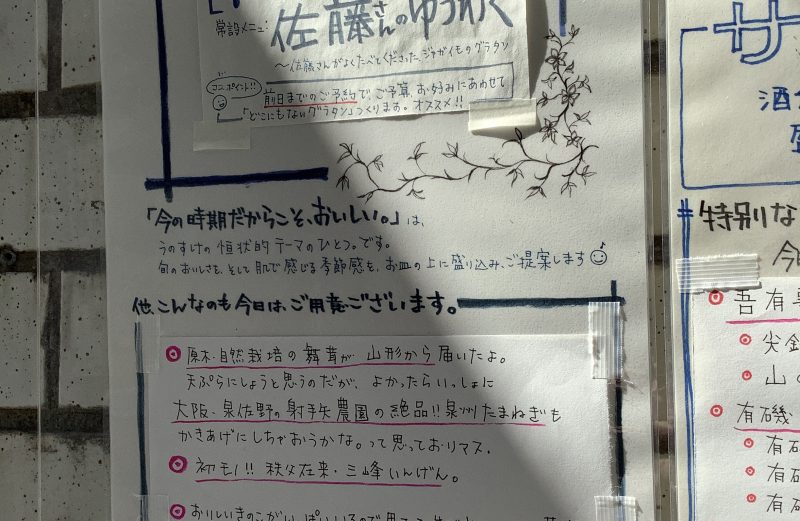 常設メニュー：佐藤さんのゆうわく
～佐藤さんがよくたべてくださった、ジャガイモのグラタン
マニ・ポイント!!
前日までのご予約で、ご予算、お好みにあわせて
「どこにもないグラタン」つくります。オススメ!!
「今の時期だからこそ、おいしい。」は、
うのすけの恒状的テーマのひとつ。です。
旬のおいしさを、そして肌で感じる季節感も、お皿の上に盛り込み、ご提案します
他、こんなのも今日は、ご用意ございます。
原木・自然栽培の舞茸が山形から届いたよ。
天ぷらにしようと思うのだが、よかったらいっしょに
大阪・泉佐野の射手矢農園の絶品!!泉州たまねぎも
かきあげにしちゃおうかな。って思っておりマス。
初モノ!!秩父在来・三峰いんげん。
サ
酒
特別な
今
吾有
尖
山の
有磯・
有
有
有